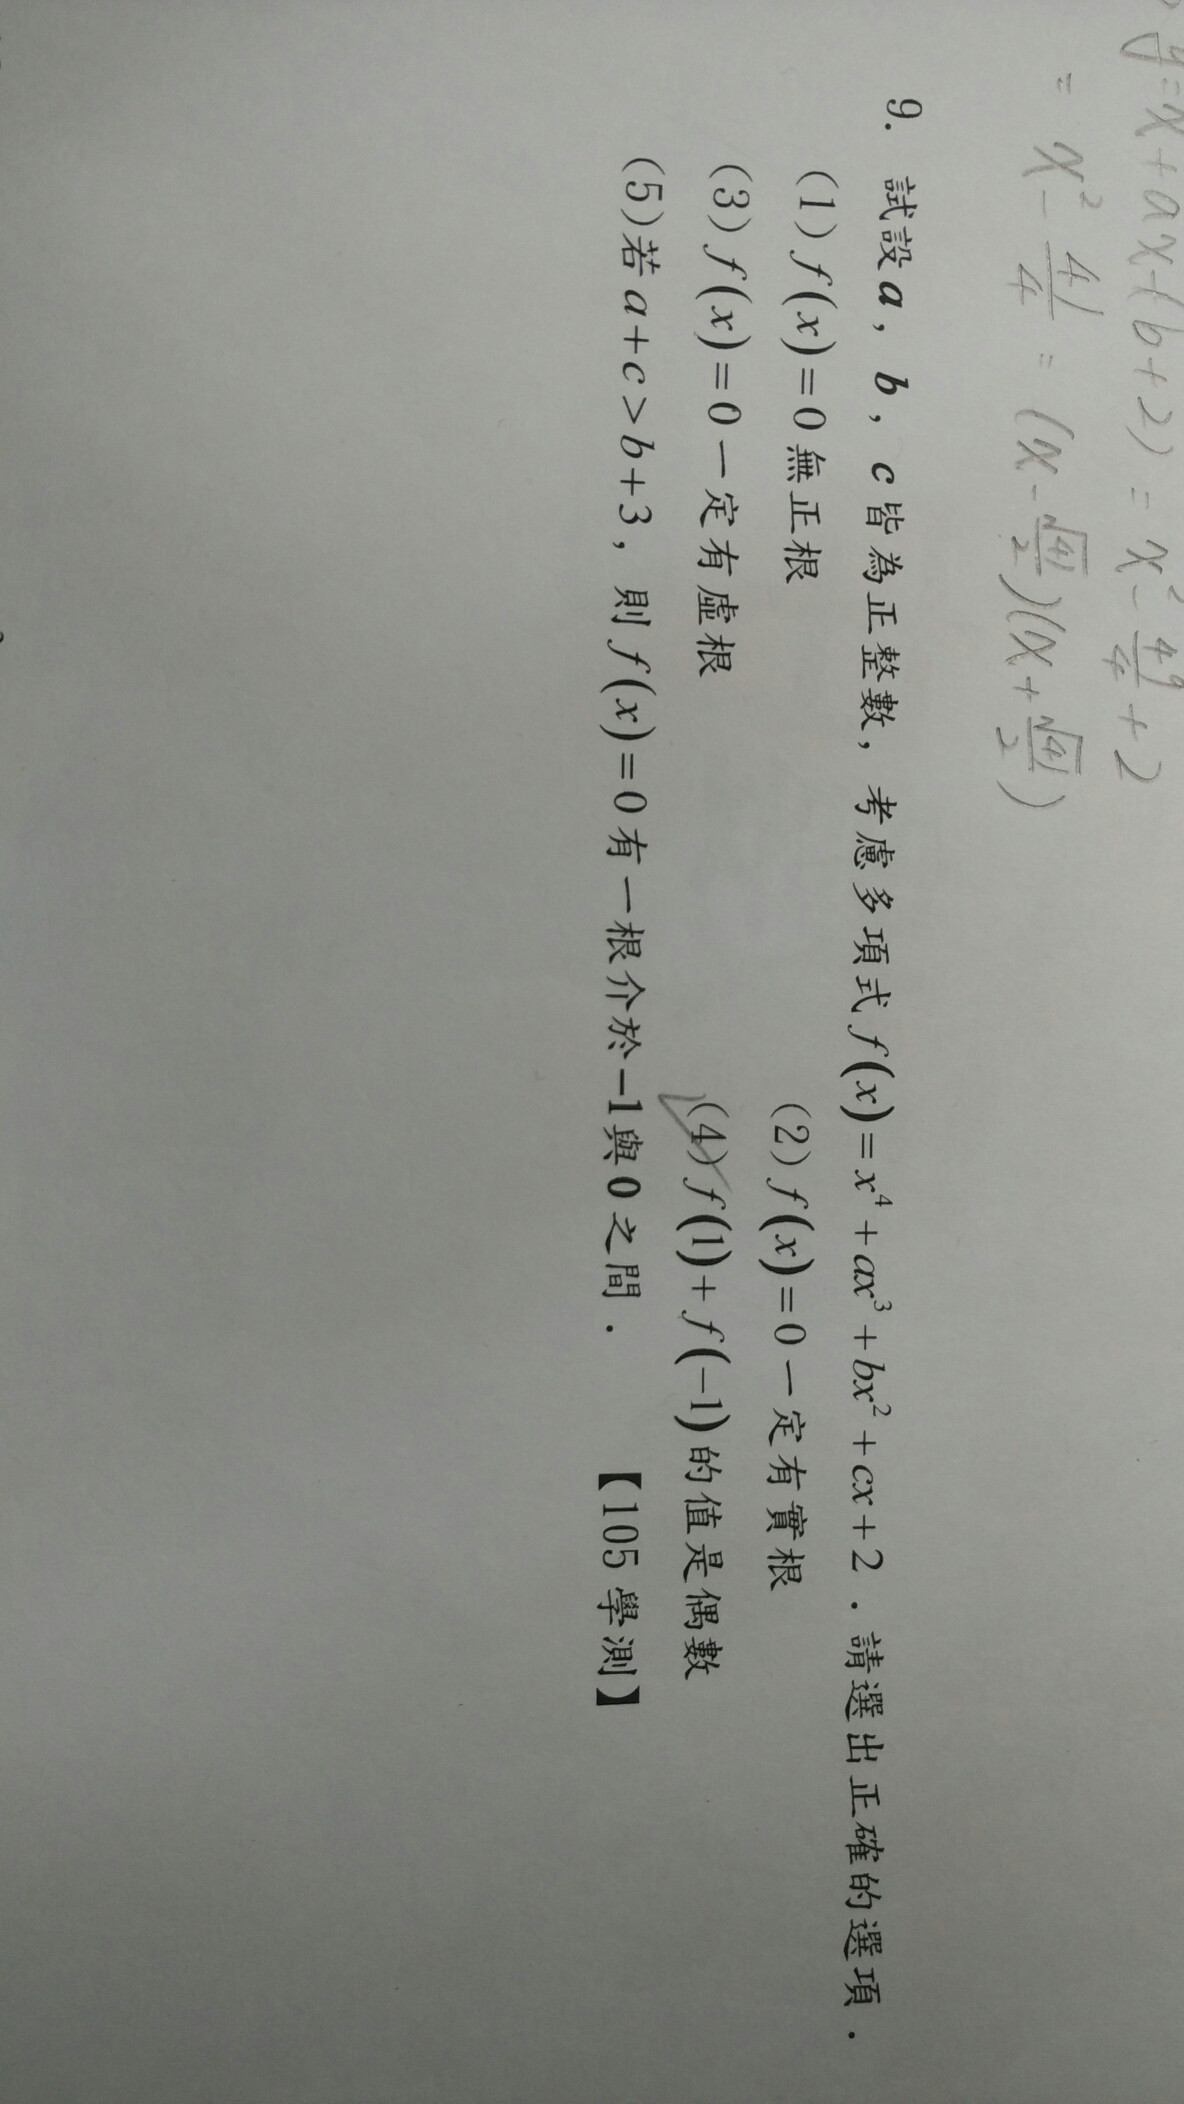 y=x+ax+(b+2) = x²-49/4+2
= x²-41/4 = (x-√41/2)(x+√41/2)
9. 試設a，b，c皆為正整數，考慮多項式f(x)=x⁴+ax³+bx²+cx+2．請選出正確的選項．
(1)f(x)=0無正根 (2)f(x)=0一定有實根
(3)f(x)=0一定有虛根 (4)f(1)+f(-1)的值是偶數
(5)若a+c>b+3，則f(x)=0有一根介於-1與0之間． 【105學測】